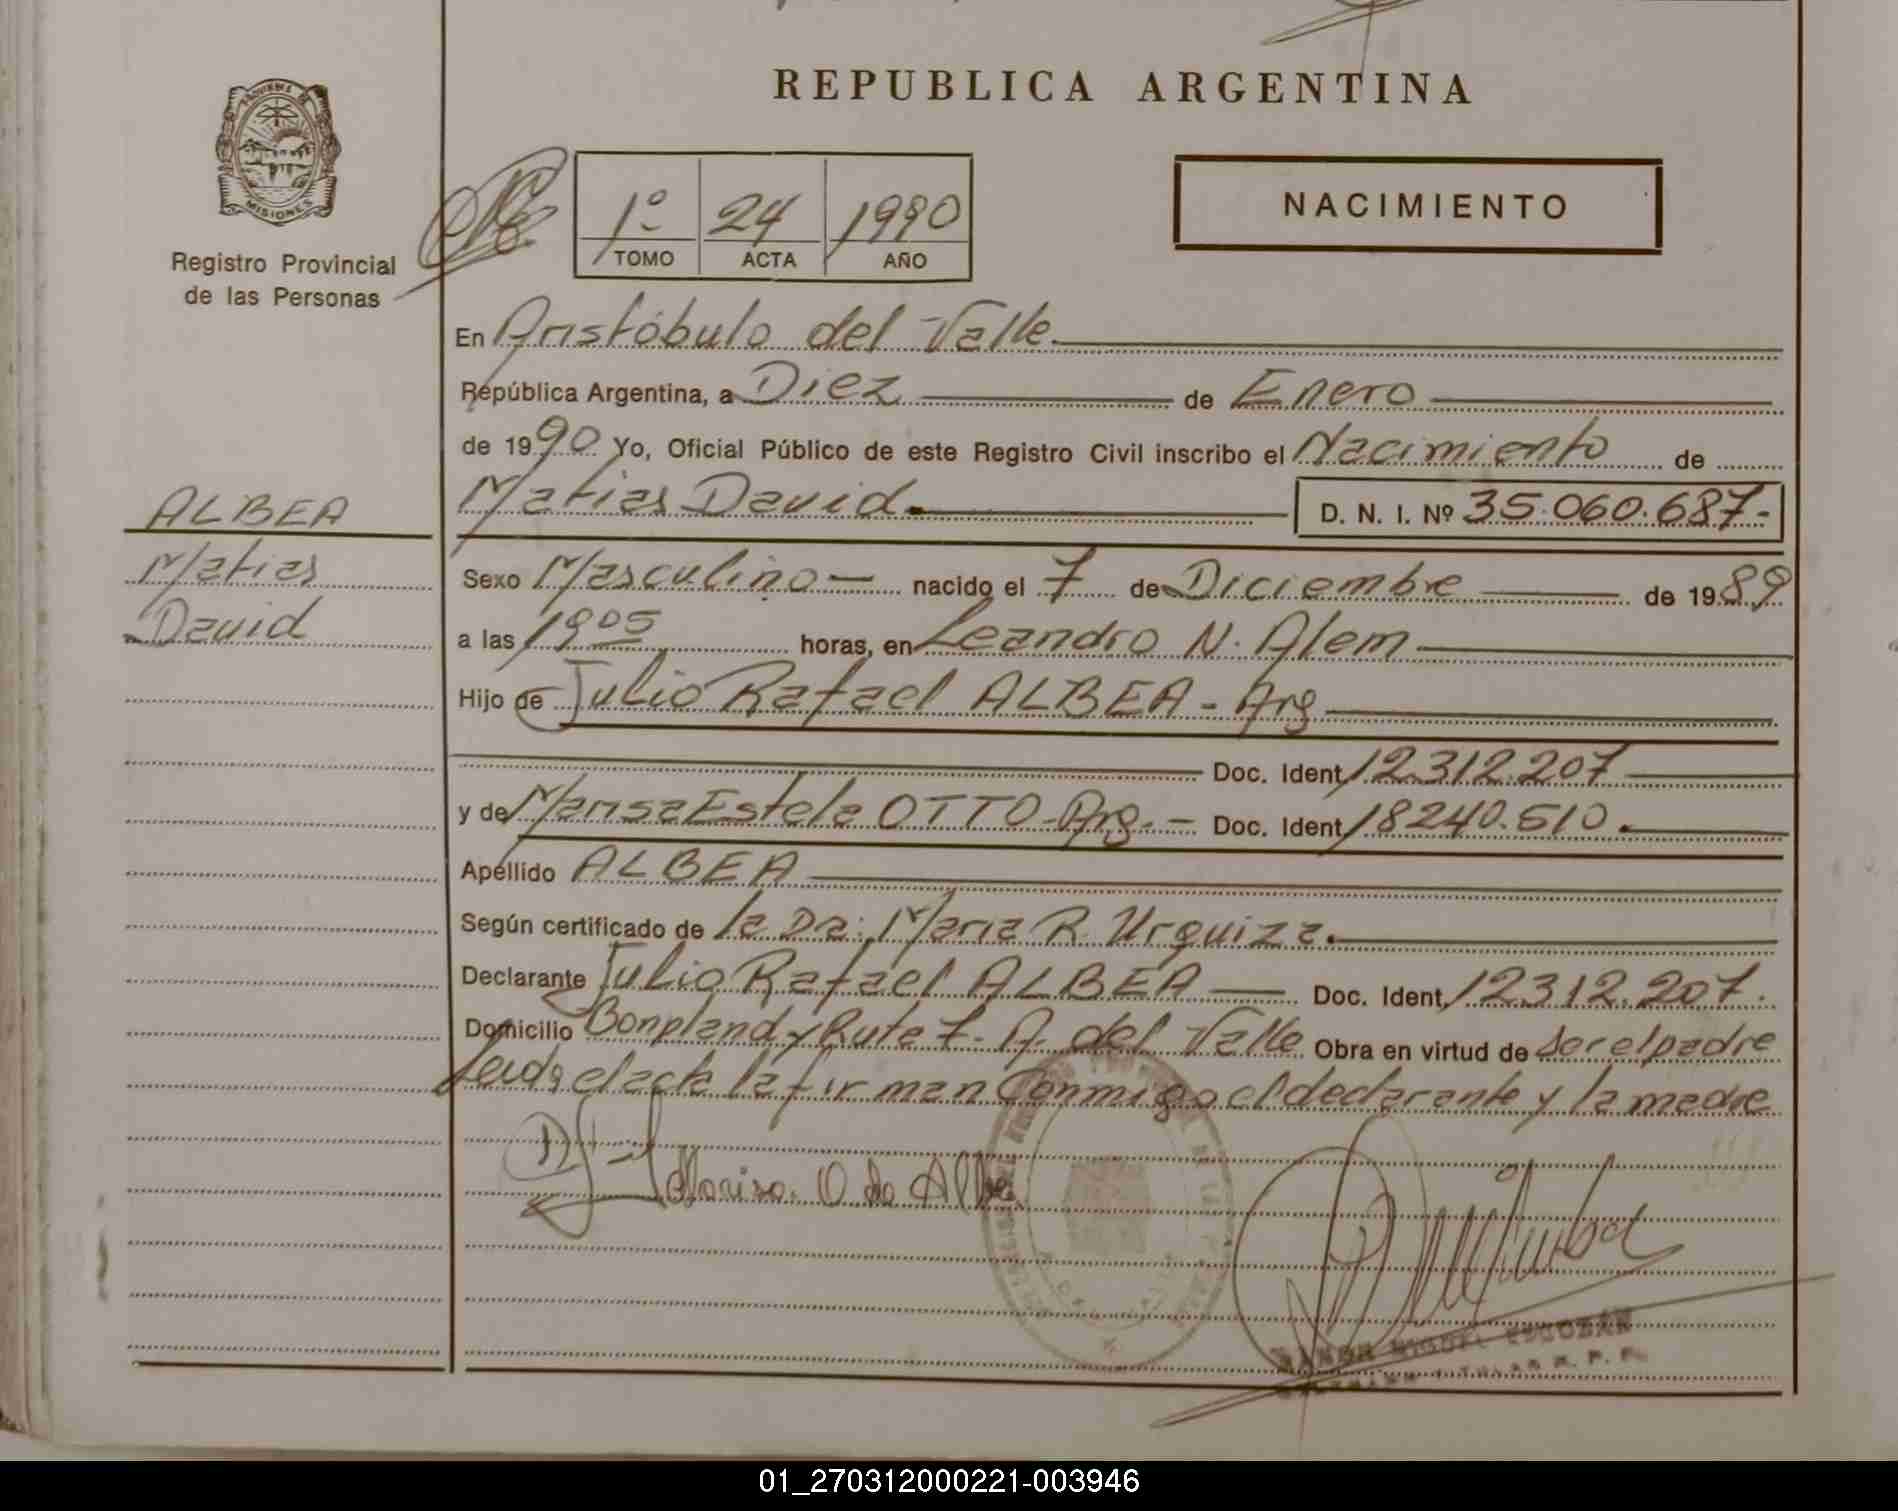 REPUBLICA ARGENTINA
PROVINCIA DE
MISIONES
Registro Provincial
de las Personas
1º 24 1990
TOMO ACTA AÑO
NACIMIENTO
En Aristóbulo del Valle
República Argentina, a Diez de Enero
de 1990 Yo, Oficial Público de este Registro Civil inscribo el Nacimiento de
Matias David D. N. I. Nº 35.060.687-
ALBEA
Matias
David
Sexo Masculino nacido el 7 de Diciembre de 1989
a las 19 05 horas, en Leandro N. Alem
Hijo de Julio Rafael ALBEA - Arg
Doc. Ident 12.312.207
y de Marisa Estela OTTO - Arg. - Doc. Ident 18240.510.
Apellido ALBEA
Según certificado de la Da: Maria R Urquiza.
Declarante Julio Rafael ALBEA Doc. Ident 12312.207.
Domicilio Bonpland y Ruta 7. A. del Valle Obra en virtud de ser el padre
Leida el acta la firman conmigo el declarante y la madre
Marisa. O de Albea
RAMON MIGUEL ESCOBAR
TITULAR R. P. P.
01_270312000221-003946